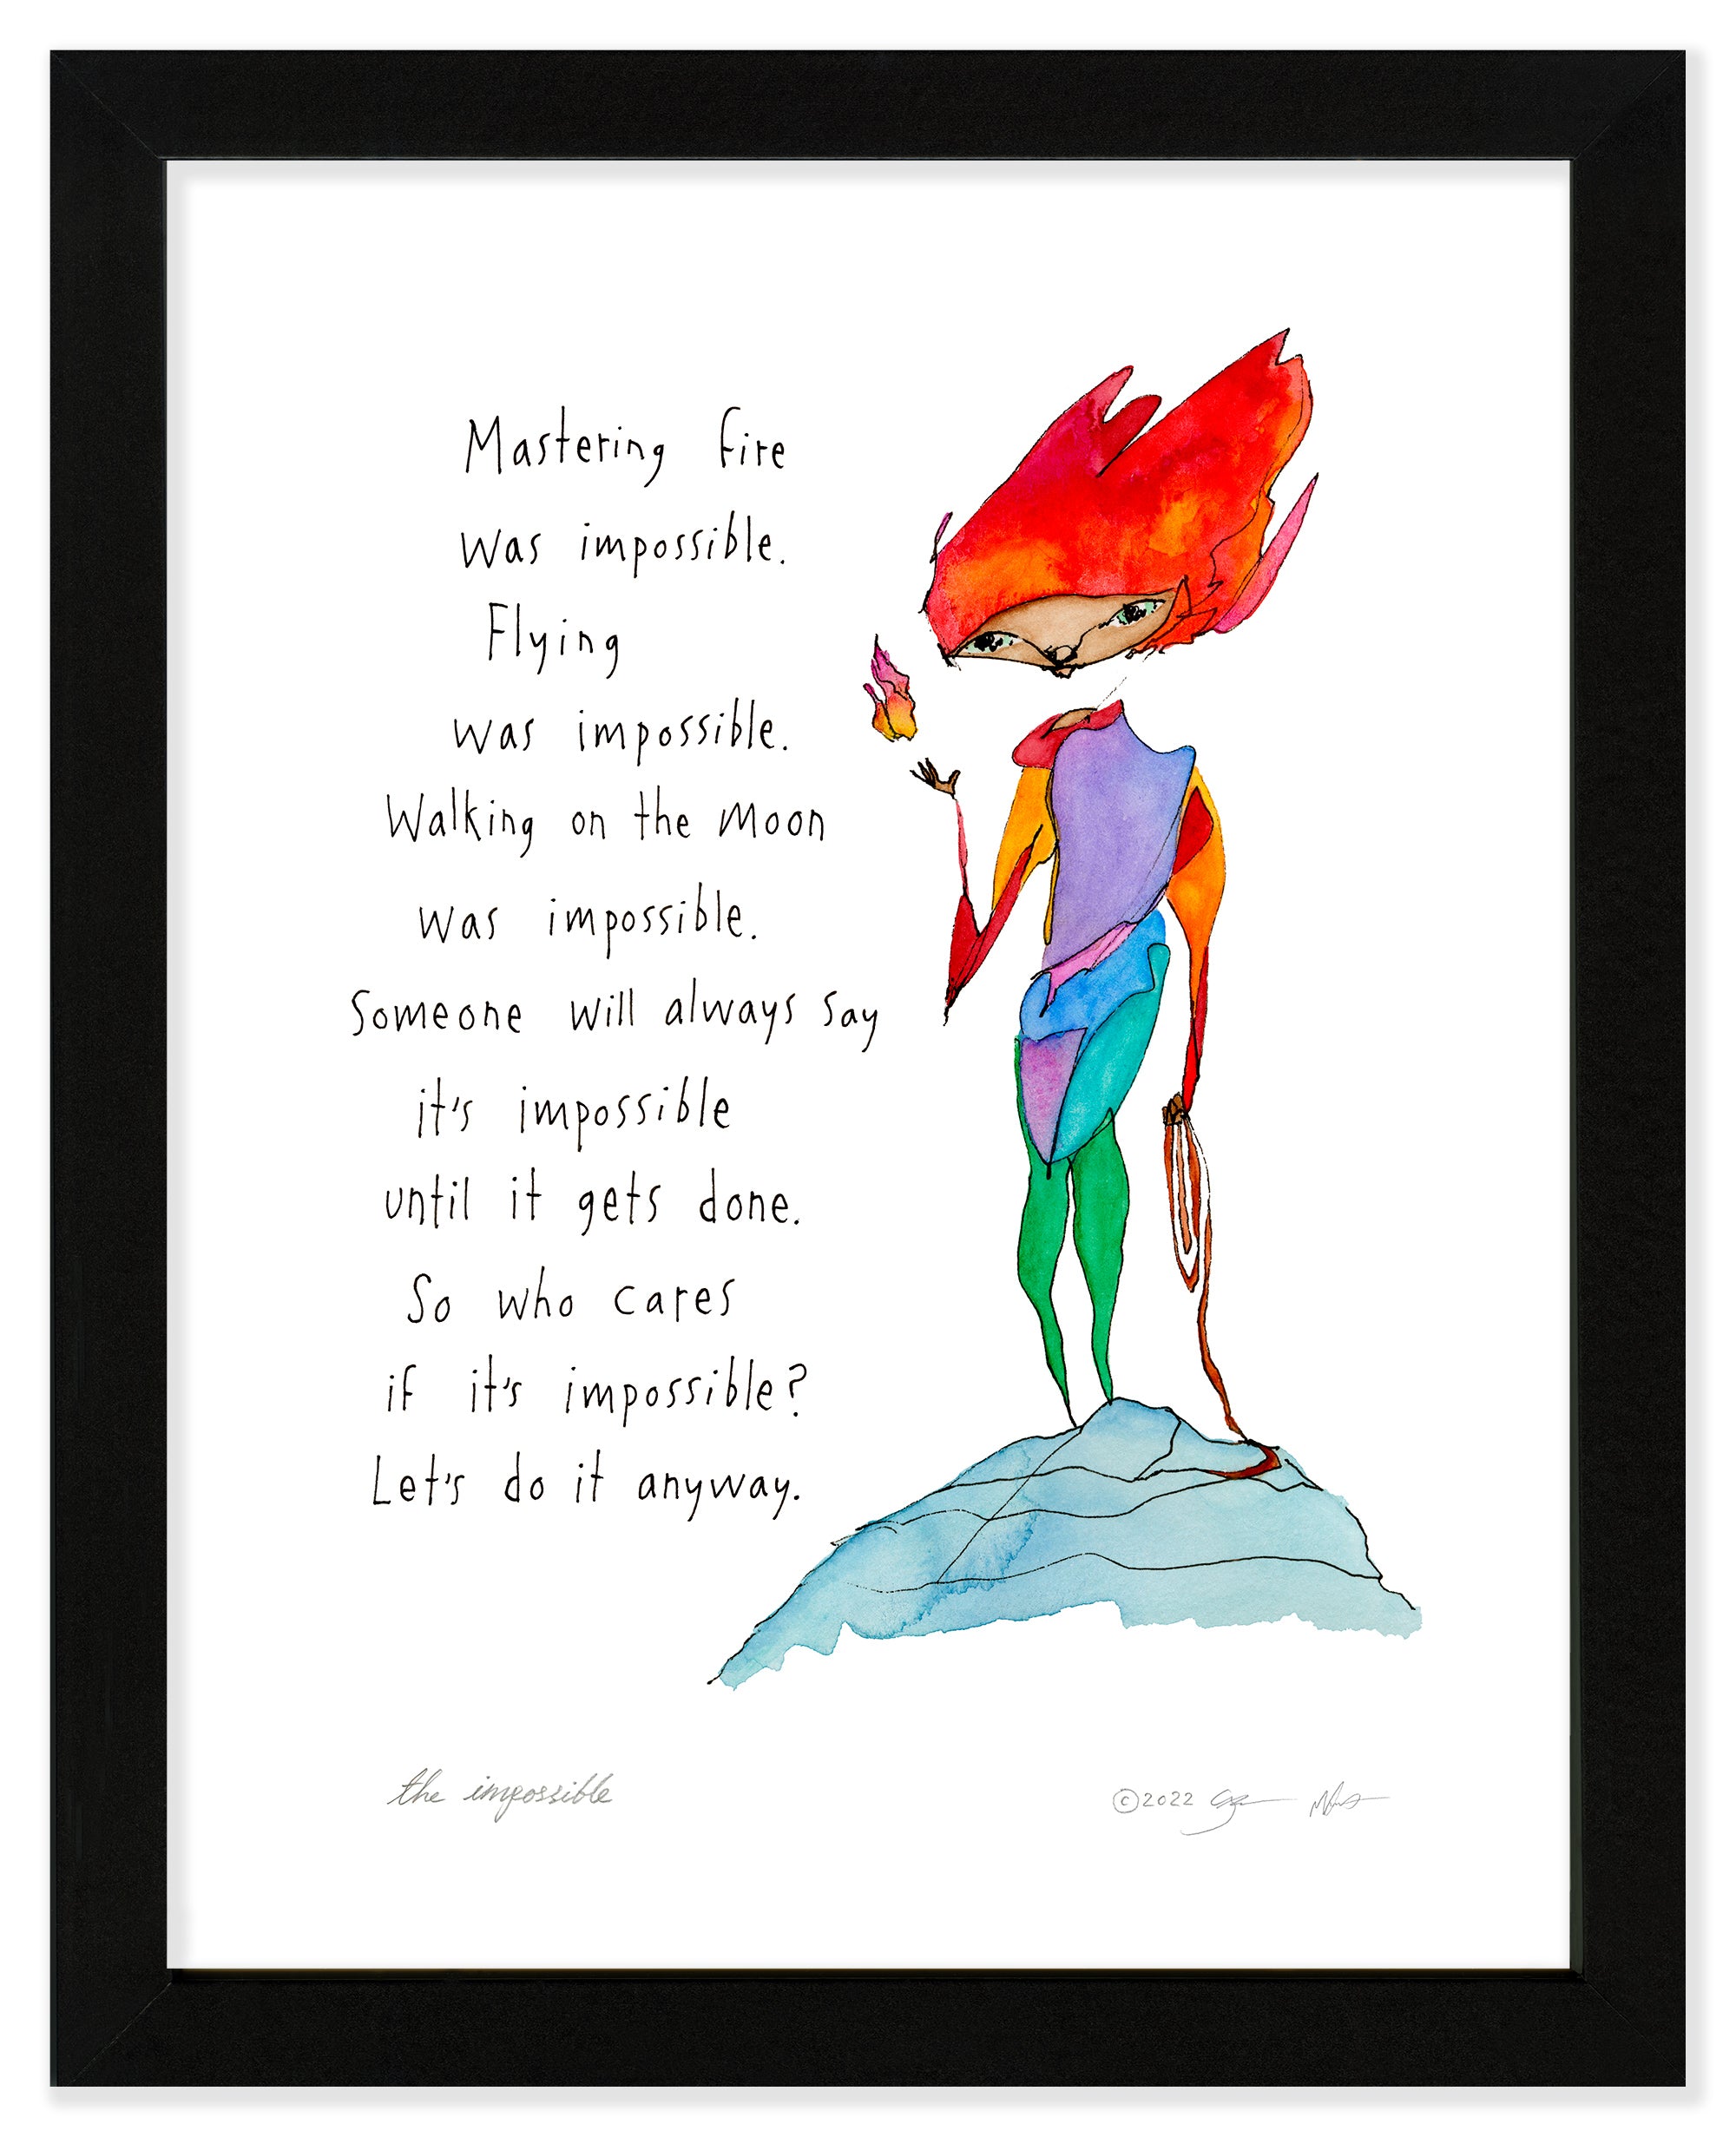 Mastering fire
was impossible.
Flying
was impossible.
Walking on the moon
was impossible.
Someone will always say
it's impossible
until it gets done.
So who cares
if it's impossible?
Let's do it anyway.
the impossible
©2022